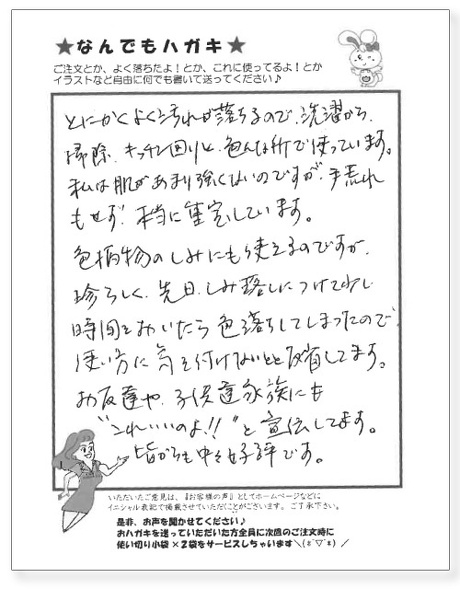 ★なんでもハガキ★
ご注文とか、よく落ちたよ！とか、これに使ってるよ！とか
イラストなど自由に何でも書いて送ってください♪
とにかくよく汚れが落ちるので、洗濯から、
掃除、キッチン回りと、色んな所で使っています。
私は肌があまり強くないのですが、手荒れ
もせず、本当に重宝しています。
色柄物のしみにも使えるのですが、
珍らしく、先日、しみ落しにつけて少し
時間をおいたら色落ちしてしまったので
使い方に気を付けないとと反省してます。
お友達や、子供達家族にも
"これいいのよ!!"と宣伝してます。
皆からも中々好評です。
いただいたご意見は、『お客様の声』としてホームページなどに
イニシャル表記で掲載させていただことがございます。ご了承下さい。
是非、お声を聞かせてください♪
おハガキを送っていただいた方全員に次回のご注文時に
使い切り小袋×2袋をサービスしちゃいます＼(≧▽≦)／